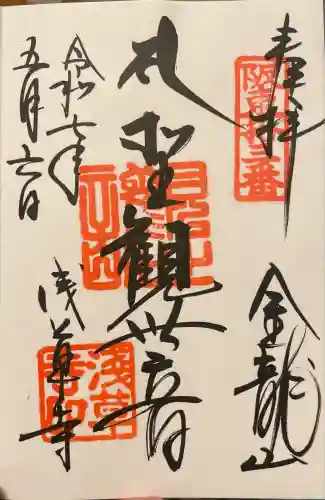 奉拝
坂東十三番
金龍山
聖観世音
令和七年
五月六日
浅草寺
浅草
寺印